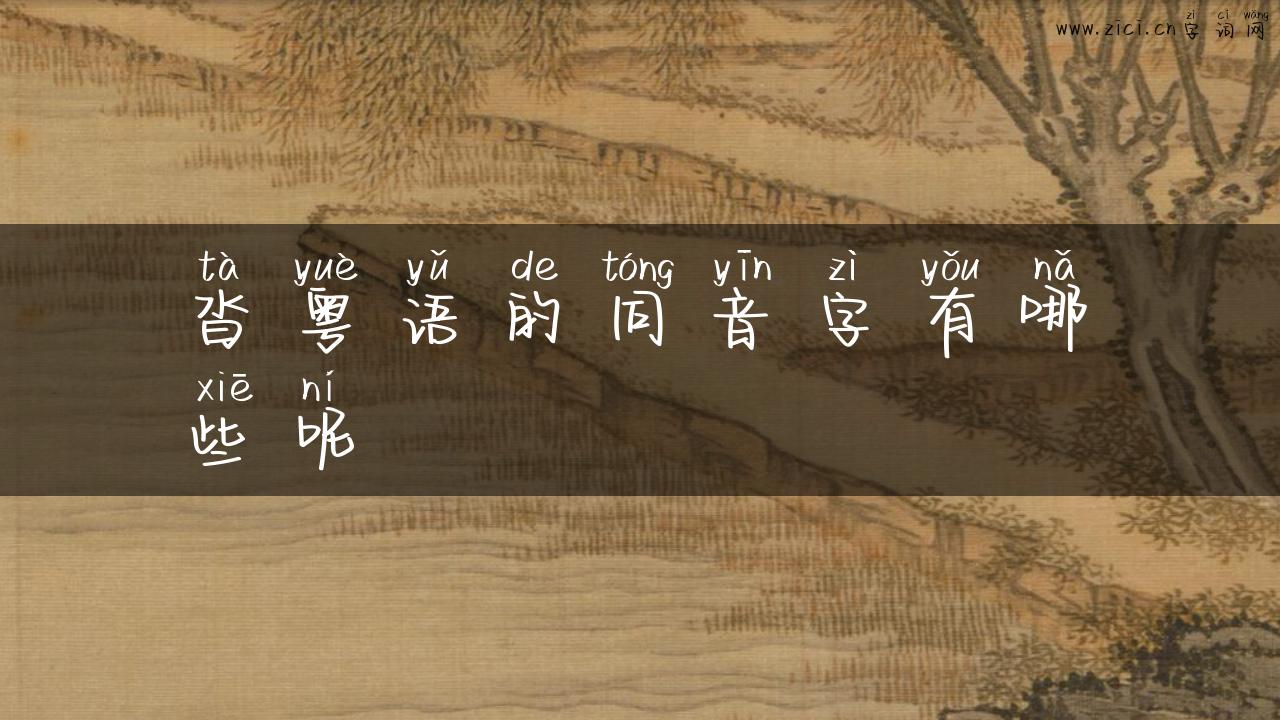 zì cí wǎng
www.zici.cn字词网
tà yuè yǔ de tóng yīn zì yǒu nǎ
沓粤语的同音字有哪
xiē ní
些呢